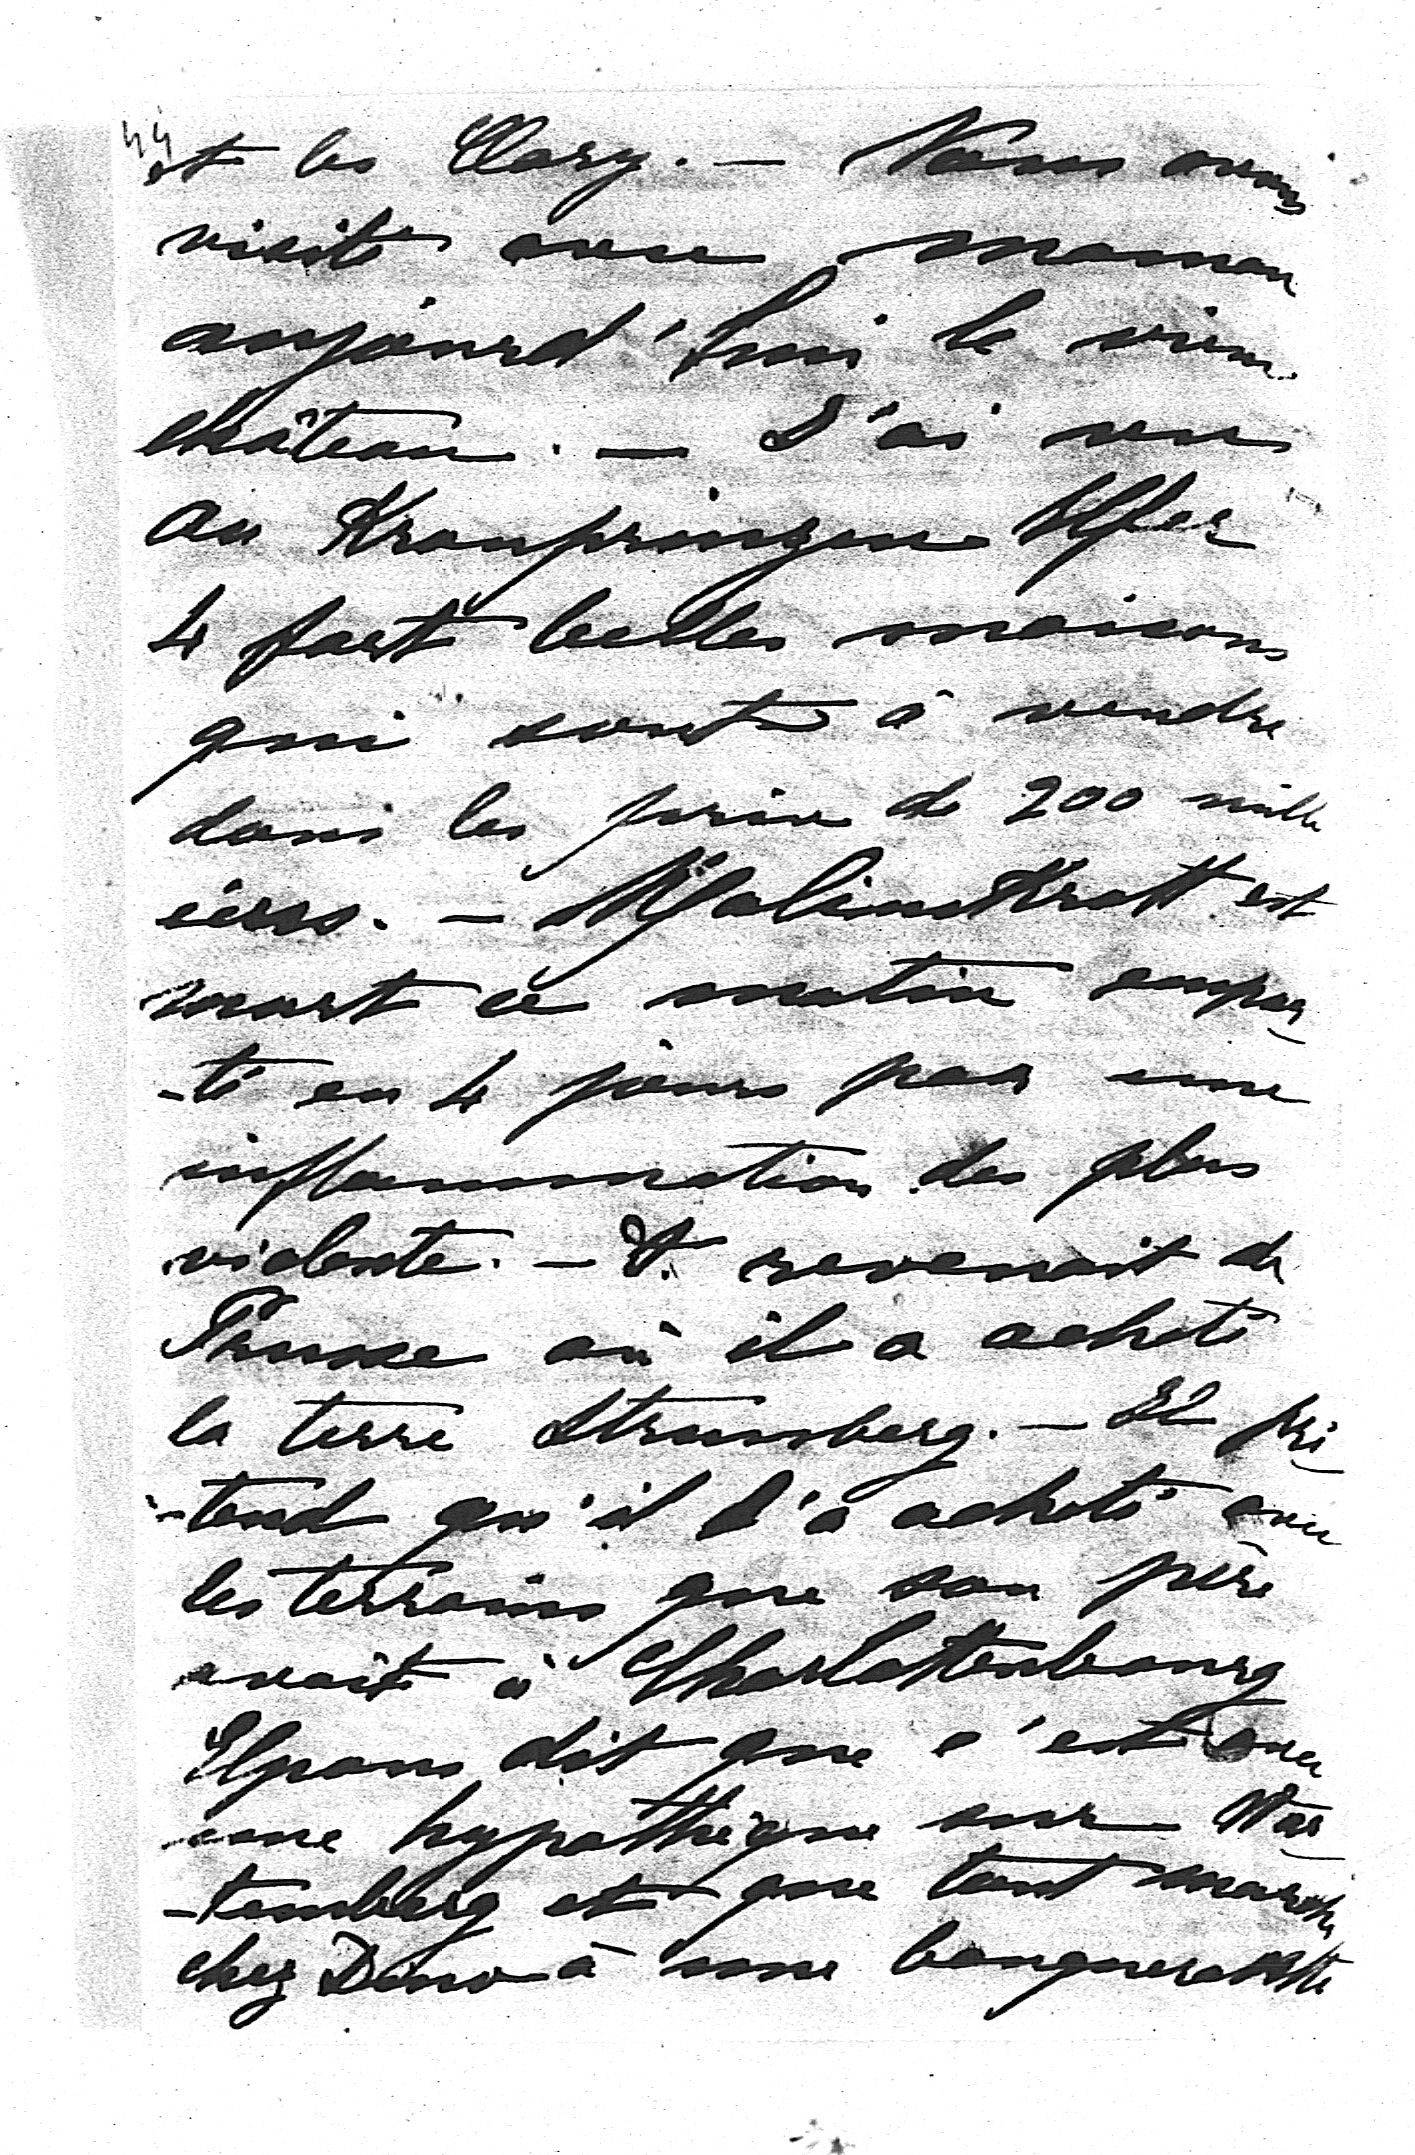 44
et les Clary. — Nous avons
visité avec maman
aujourd'hui le vieux
château. — J'ai vu
au Kronprinzen Ufer
4 fort belles maisons
qui sont à vendre
dans les prix de 200 mille
écus. — est
mort ce matin empor
-té en 4 jours par une
inflammation des plus
violente. — revenait de
Prusse où il a acheté
la terre Strausberg. — Il pré
-tend qu'il l'a acheté avec
les terrains que son père
avait à Charlottenbourg
dit que c'est avec
une hypothèque sur War
-temberg et que tout marche
chez Dino à une banqueroute